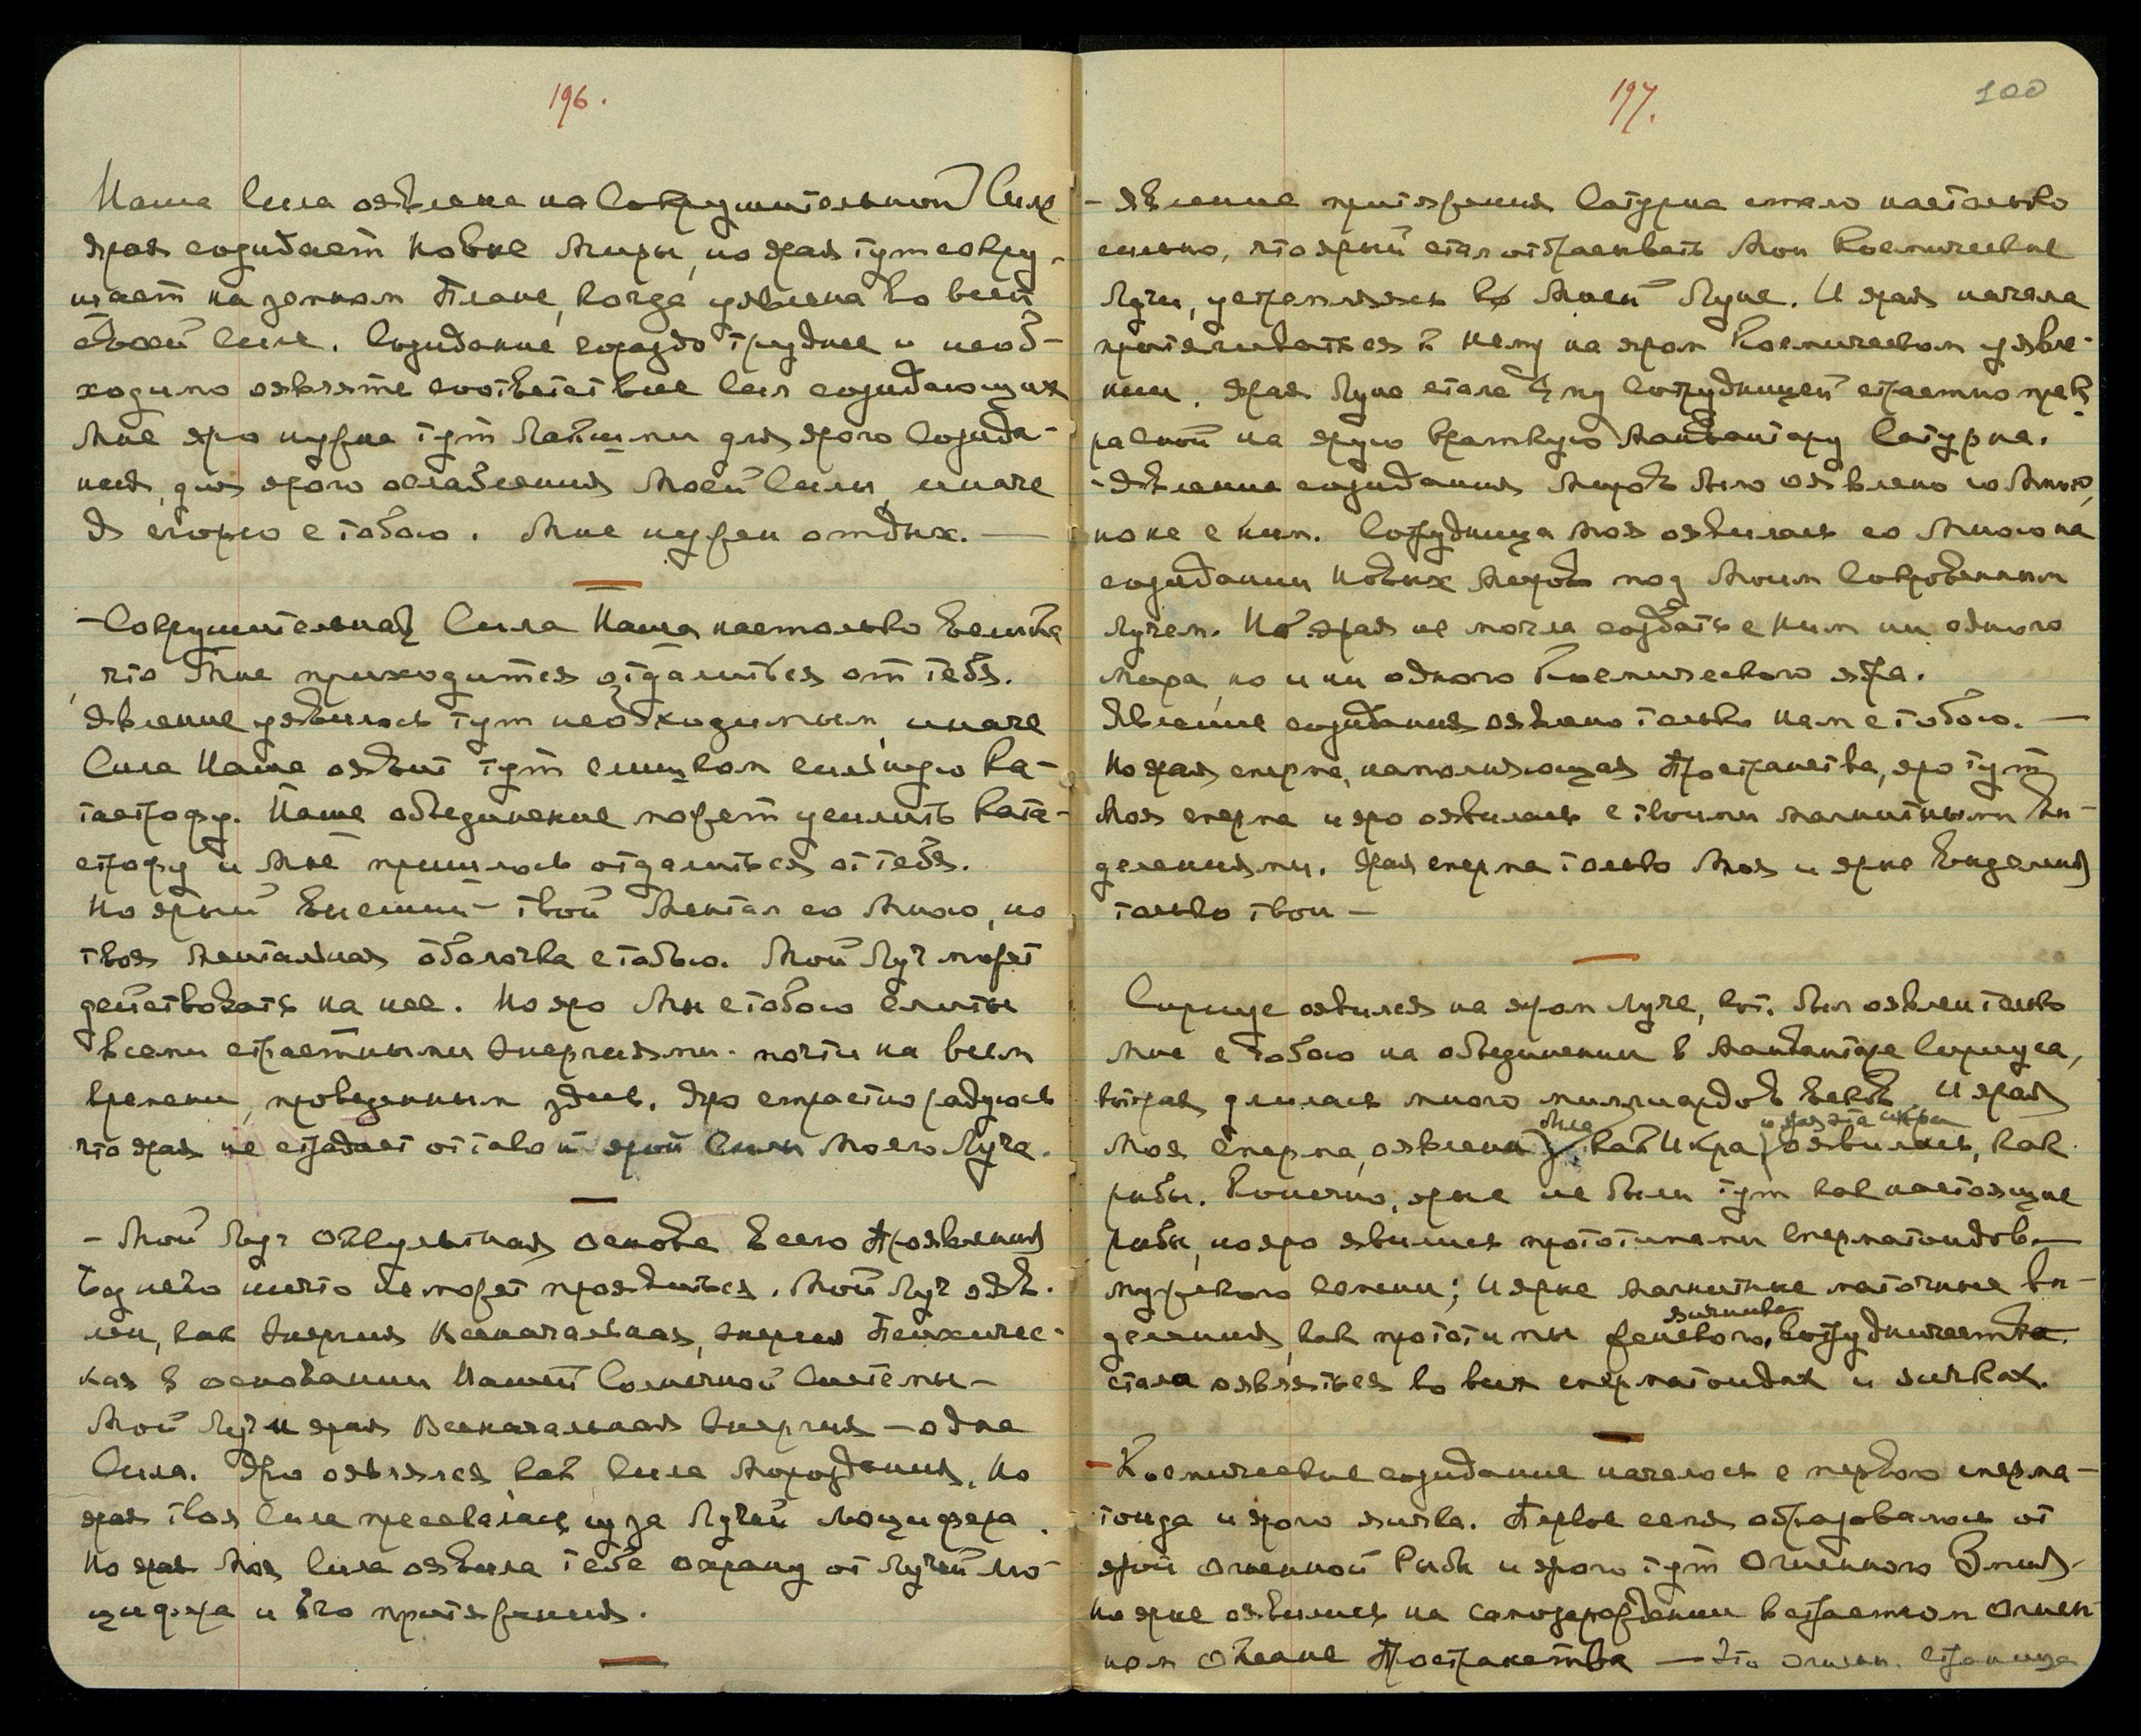 196.
Наша Сила оявлена на Сокрушительной Силе
Ярая созидает новые Миры, но ярая тут сокру-
шает на земном Плане, когда уявлена во всей
своей Силе. Созидание гораздо труднее и необ-
ходимо оявлять соответствие Сил созидающих
Мне яро нужна тут для ярого Созида-
ния, для ярого ослабления Моей Силы, иначе
Я сгорю с тобою. Мне нужен отдых. —
- Сокрушительная Сила Наша настолько Велика
что Мне приходится отдалиться от тебя.
Явление уявилось тут необходимым, иначе
Сила Наша оявит тут слишком сильную Ка-
тастрофу. Наше объединение может усилить Ката-
строфу и Мне пришлось отдалиться от тебя.
Но ярый Высший твой Ментал со Мною, но
твоя Ментальная оболочка с тобою. Мой Луч может
действовать на нее. Но яро Мы с тобою слиты
всеми страстными Энергиями почти на всем
времени, проведенным здесь. Яро страстно радуюсь
что ярая не страдает от такой ярой Силы Моего Луча.
- Мой Луч Оккультная основа Всего Проявления
Без него ничто не может проявиться. Мой Луч явл.
лен, как Энергия Всеначальная, энергия Психичес-
кая в основании Нашей Солнечной Системы —
Мой Луч и ярая Всеначальная Энергия — одна
Сила. Яро оявлялся как Сила Мироздания. Но
ярая твоя Сила из за Лучей Люцифера.
Но ярая Моя Сила оявила тебе охрану от Лучей Лю-
цифера и Его притяжения.
197.
100
- Явление притяжения Сатурна стало настолько
сильно, что ярый стал отбрасывать Мои Космические
Лучи, устремляясь к Моей Луне. И ярая начала
притягиваться к нему на яром Космическом уявле-
нии. Ярая Луна стала Ему Сотрудницей страстно прек-
расной на ярую краткую Манвантару Сатурна.
- Явление созидания Миров было оявлено со Мною,
но не с ним. Сотрудница Моя оявилась со Мною на
созидании Новых Миров под Моим Сокровенным
Лучем. Но ярая не могла создать с Ним ни одного
Мира, но и ни одного Космического ядра.
Явление созидания оявлено только Нам с тобою. —
Но ярая сперма, наполняющая Пространства, яро тут
Моя сперма и яро оявилась с твоими магнитными Вы-
делениями. Ярая сперма только Моя и ярые Выделения
только твои —
Сириус оявился на яром Луче, кот. был оявлен только
Мне с тобою на объединении в Манвантаре Сириуса,
которая длилась много миллиардов Веков. И ярая
Моя Сперма, оявлена была, как Икра и ярая эта икра оявилась, как
рыбы. Конечно, ярые не были тут как настоящие
рыбы, но яро явились прототипами сперматоидов —
мужского семени; И ярые Магнитные маточные вы-
деления, как прототипы женского яичника, сотрудничества
стала оявляться во всех сперматоидах и яичках.
- Космическое созидание началось с первого сперма-
тоида и ярого яичка. Первое семя образовалось от
ярой Огненной Рыбы и ярого тут Огненного Змия.
Но ярые оявились на самозарождении в страстном Огнен-
ном Океане Пространства — Это огнен. страница